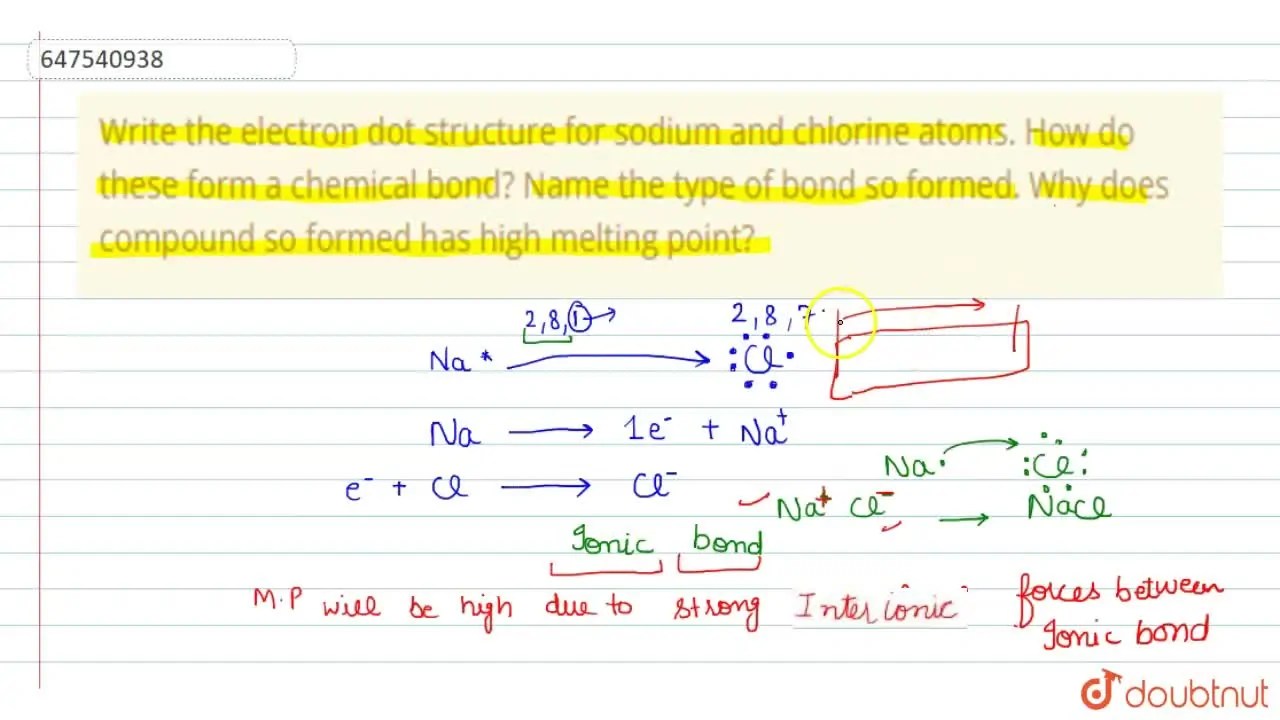 647540938
Write the electron dot structure for sodium and chlorine atoms. How do
these form a chemical bond? Name the type of bond so formed. Why does
compound so formed has high melting point?
2,8,1 → 2,8,7
Na * → Cl
Na → 1e⁻ + Na⁺
Na· → :Cl:
e⁻ + Cl → Cl⁻
Na⁺ Cl⁻ → NaCl
Ionic bond
M.P will be high due to strong Inter ionic forces between
Ionic bond
doubtnut